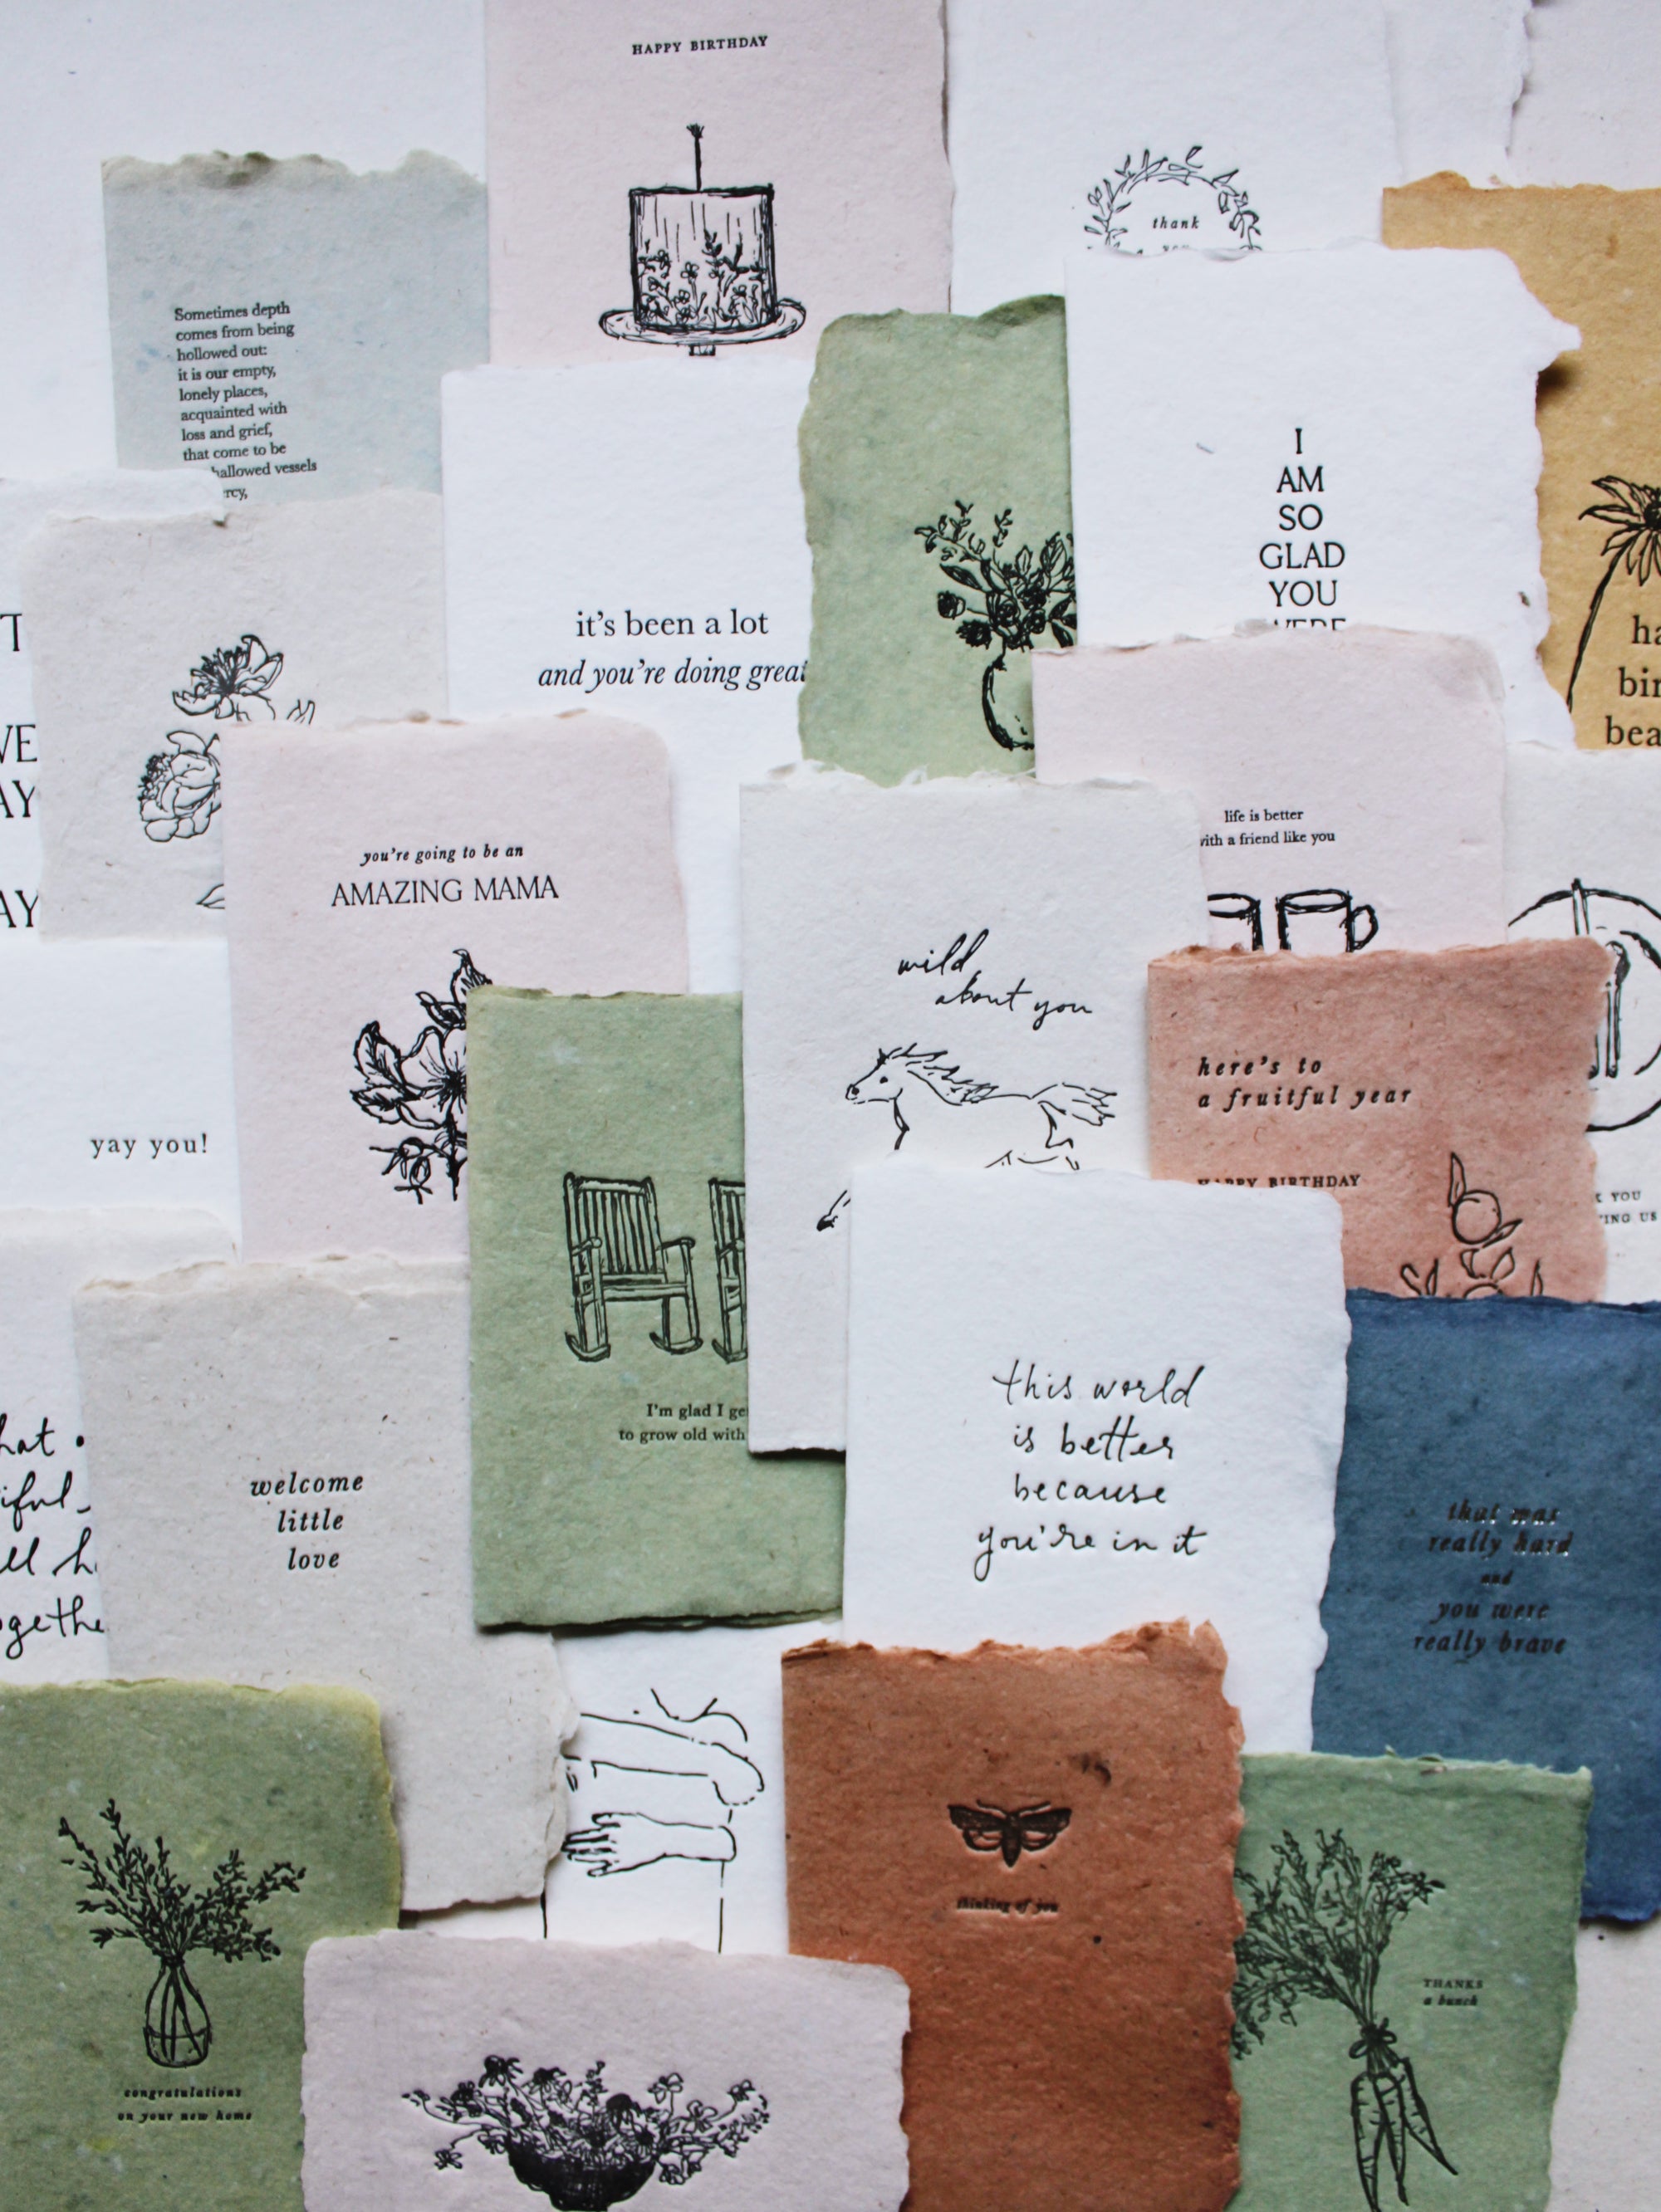 HAPPY BIRTHDAY
thank
Sometimes depth
comes from being
hollowed out:
it is our empty,
lonely places,
acquainted with
loss and grief,
that come to be
hallowed vessels
I
AM
SO
GLAD
YOU
it's been a lot
and you're doing great
life is better
with a friend like you
you're going to be an
AMAZING MAMA
wild
about you
here's to
a fruitful year
HAPPY BIRTHDAY
YOU
US
yay you!
I'm glad I
to grow old with
this world
is better
because
you're in it
welcome
little
love
that was
really hard
and
you were
really brave
thinking of you
THANKS
a bunch
congratulations
on your new home